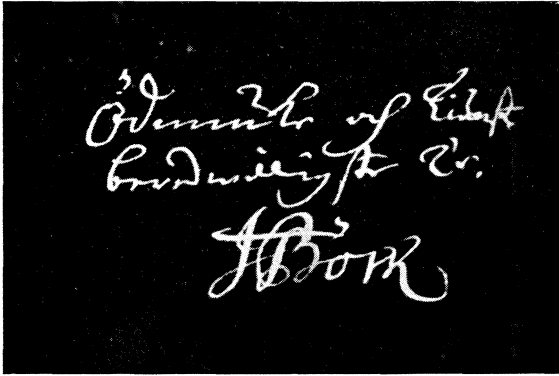 Ödmiuke och tienst
beredwilligste Tr.
HBork